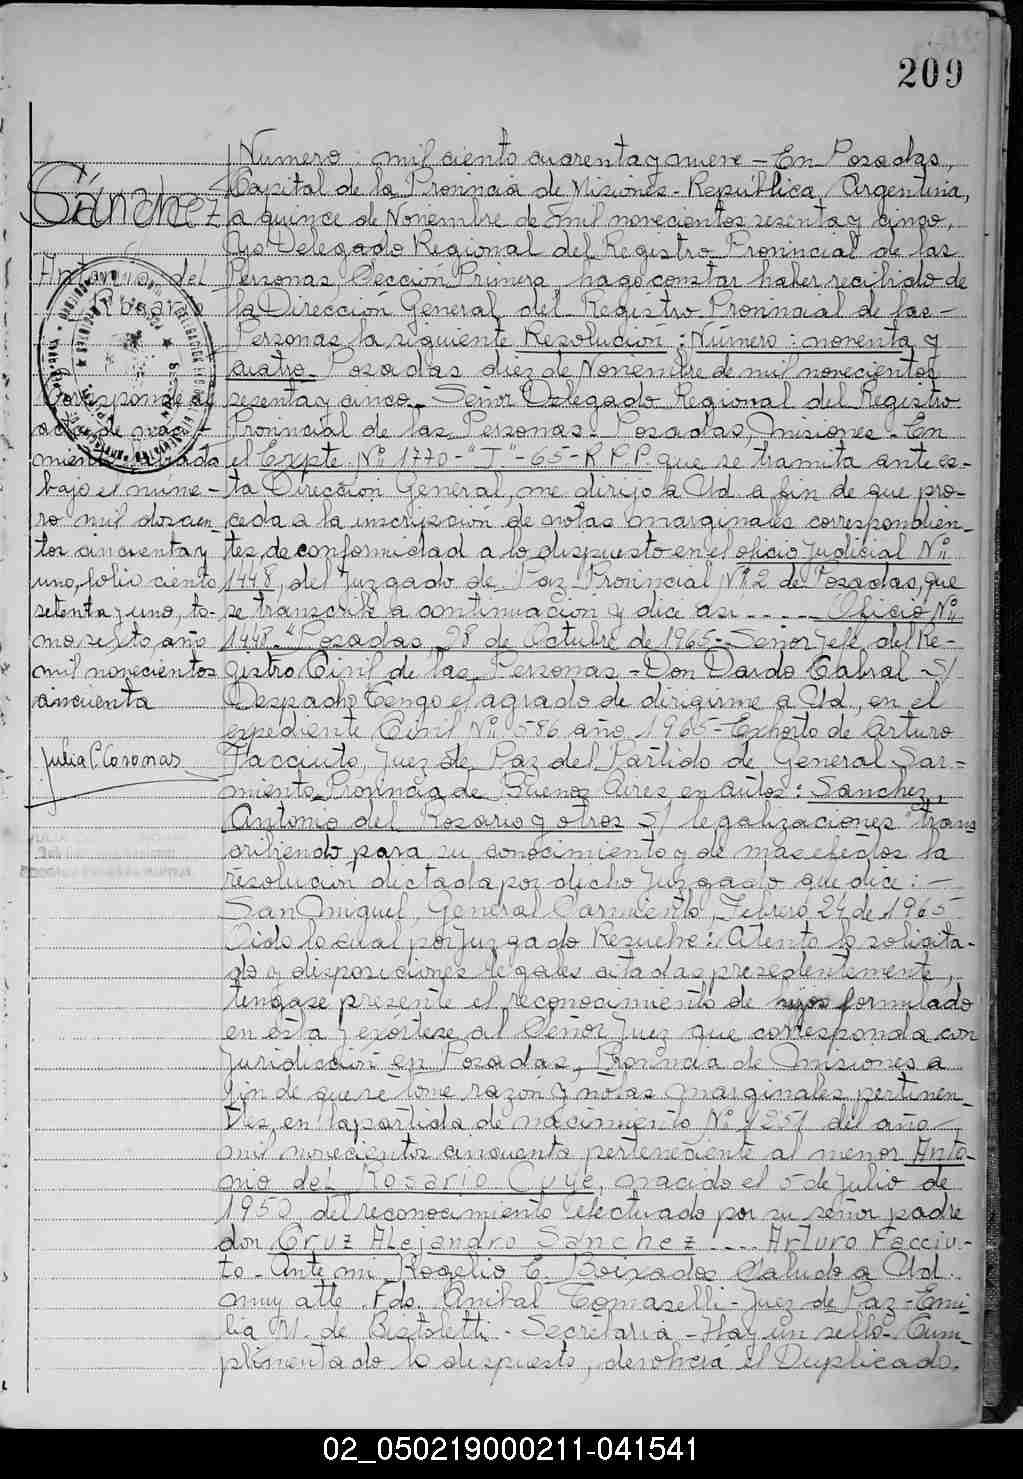 209
Sánchez
Antonio del
Rosario
Corresponde al
acta de naci-
miento
bajo el núme-
ro mil doscien-
tos cincuenta y
uno, folio ciento
setenta y uno, to-
mo sexto año
mil novecientos
cincuenta
Julia C. Coronas
Número: mil ciento cuarenta y nueve - En Posadas,
Capital de la Provincia de Misiones - República Argentina,
a quince de Noviembre de mil novecientos sesenta y cinco,
Yo Delegado Regional del Registro Provincial de las
Personas Sección Primera, hago constar haber recibido de
la Dirección General del Registro Provincial de las -
Personas la siguiente Resolución: Número: noventa y
cuatro. Posadas, diez de Noviembre de mil novecientos
sesenta y cinco. Señor Delegado Regional del Registro
Provincial de las Personas - Posadas, Misiones - En
el Expte. Nº 1770-"J"-65-R.P.P. que se tramita ante es-
ta Dirección General, me dirijo a Ud. a fin de que pro-
ceda a la inscripción de notas marginales correspondien-
tes, de conformidad a lo dispuesto en el oficio Judicial Nº
1448, del Juzgado de Paz Provincial Nº 2 de Posadas, que
se transcribe a continuación y dice así ------ Oficio Nº
1448. "Posadas, 28 de Octubre de 1965 - Señor Jefe del Re-
gistro Civil de las Personas - Don Dardo Cabral - S/
Despacho Tengo el agrado de dirigirme a Ud., en el
expediente Civil Nº 586 año 1965 - Exhorto de Arturo
Facciuto, Juez de Paz del Partido de General Sar-
miento Provincia de Buenos Aires en autos: Sanchez,
Antonio del Rosario y otros S/ legalizaciones" trans
cribiendo para su conocimiento y de mas efectos la
resolución dictada por dicho Juzgado que dice: -
San Miguel, General Sarmiento, Febrero 24 de 1965
Oido lo cual por Juzgado Resuelve: Atento lo solicita-
do y disposiciones legales citadas presedentemente,
tengase presente el reconocimiento de hijos formulado
en esta y exórtese al Señor Juez que corresponda con
Juridicción en Posadas, Provincia de Misiones a
fin de que se tome razón y notas marginales pertinen-
tes, en la partida de nacimiento Nº 1251 del año -
mil novecientos cincuenta perteneciente al menor Anto-
nio del Rosario Cuye, nacido el 5 de Julio de
1950 del reconocimiento efectuado por su señor padre
don Cruz Alejandro Sanchez ---- Arturo Facciu-
to - Ante mi Rogelio E. Boixados Saludo a Ud.
muy atte. Fdo. Anibal Tomaselli - Juez de Paz - Emi
lia M. de Bistoletti - Secretaria - Hay un sello - Cum
plimentado lo dispuesto, devolverá el Duplicado.
02_050219000211-041541